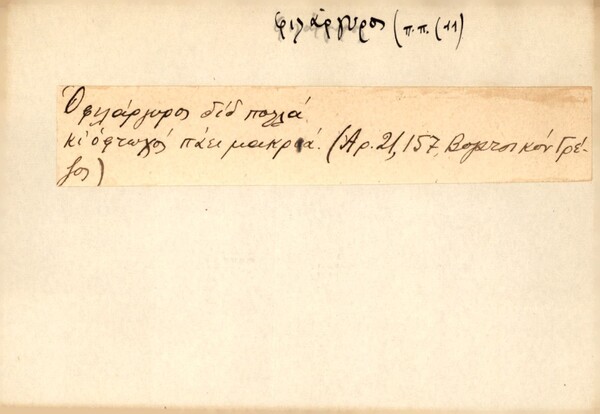 φιλάργυρος (π.π. (11)
Ὁ φιλάργυρος δίδ πολλά
κι ὁ φτωχός πάει μακριά. (Ἀρ. 21, 157, Βογατσικόν Γρέ-
βος)